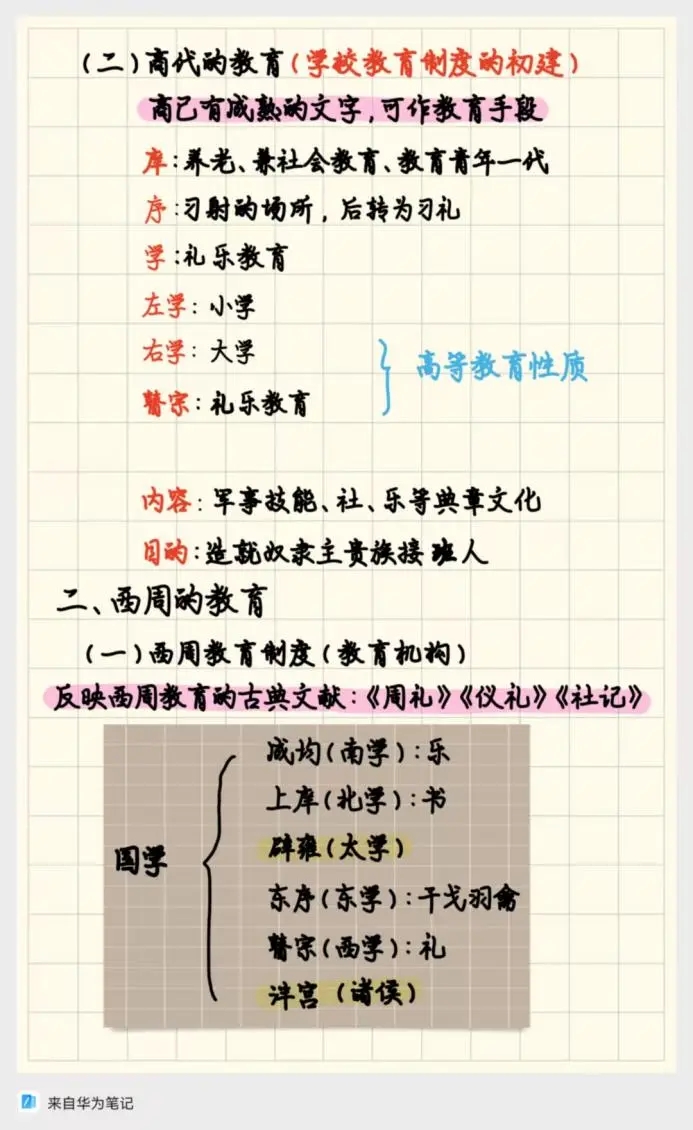 （二）商代的教育（学校教育制度的初建）
商已有成熟的文字，可作教育手段
庠：养老、兼社会教育、教育青年一代
序：习射的场所，后转为习礼
学：礼乐教育
左学：小学
右学：大学
高等教育性质
瞽宗：礼乐教育
内容：军事技能、社、乐等典章文化
目的：造就奴隶主贵族接班人
二、西周的教育
（一）西周教育制度（教育机构）
反映西周教育的古典文献：《周礼》《仪礼》《社记》
成均（南学）：乐
上庠（北学）：书
国学
辟雍（太学）
东序（东学）：干戈羽龠
瞽宗（西学）：礼
泮宫（诸侯）
来自华为笔记